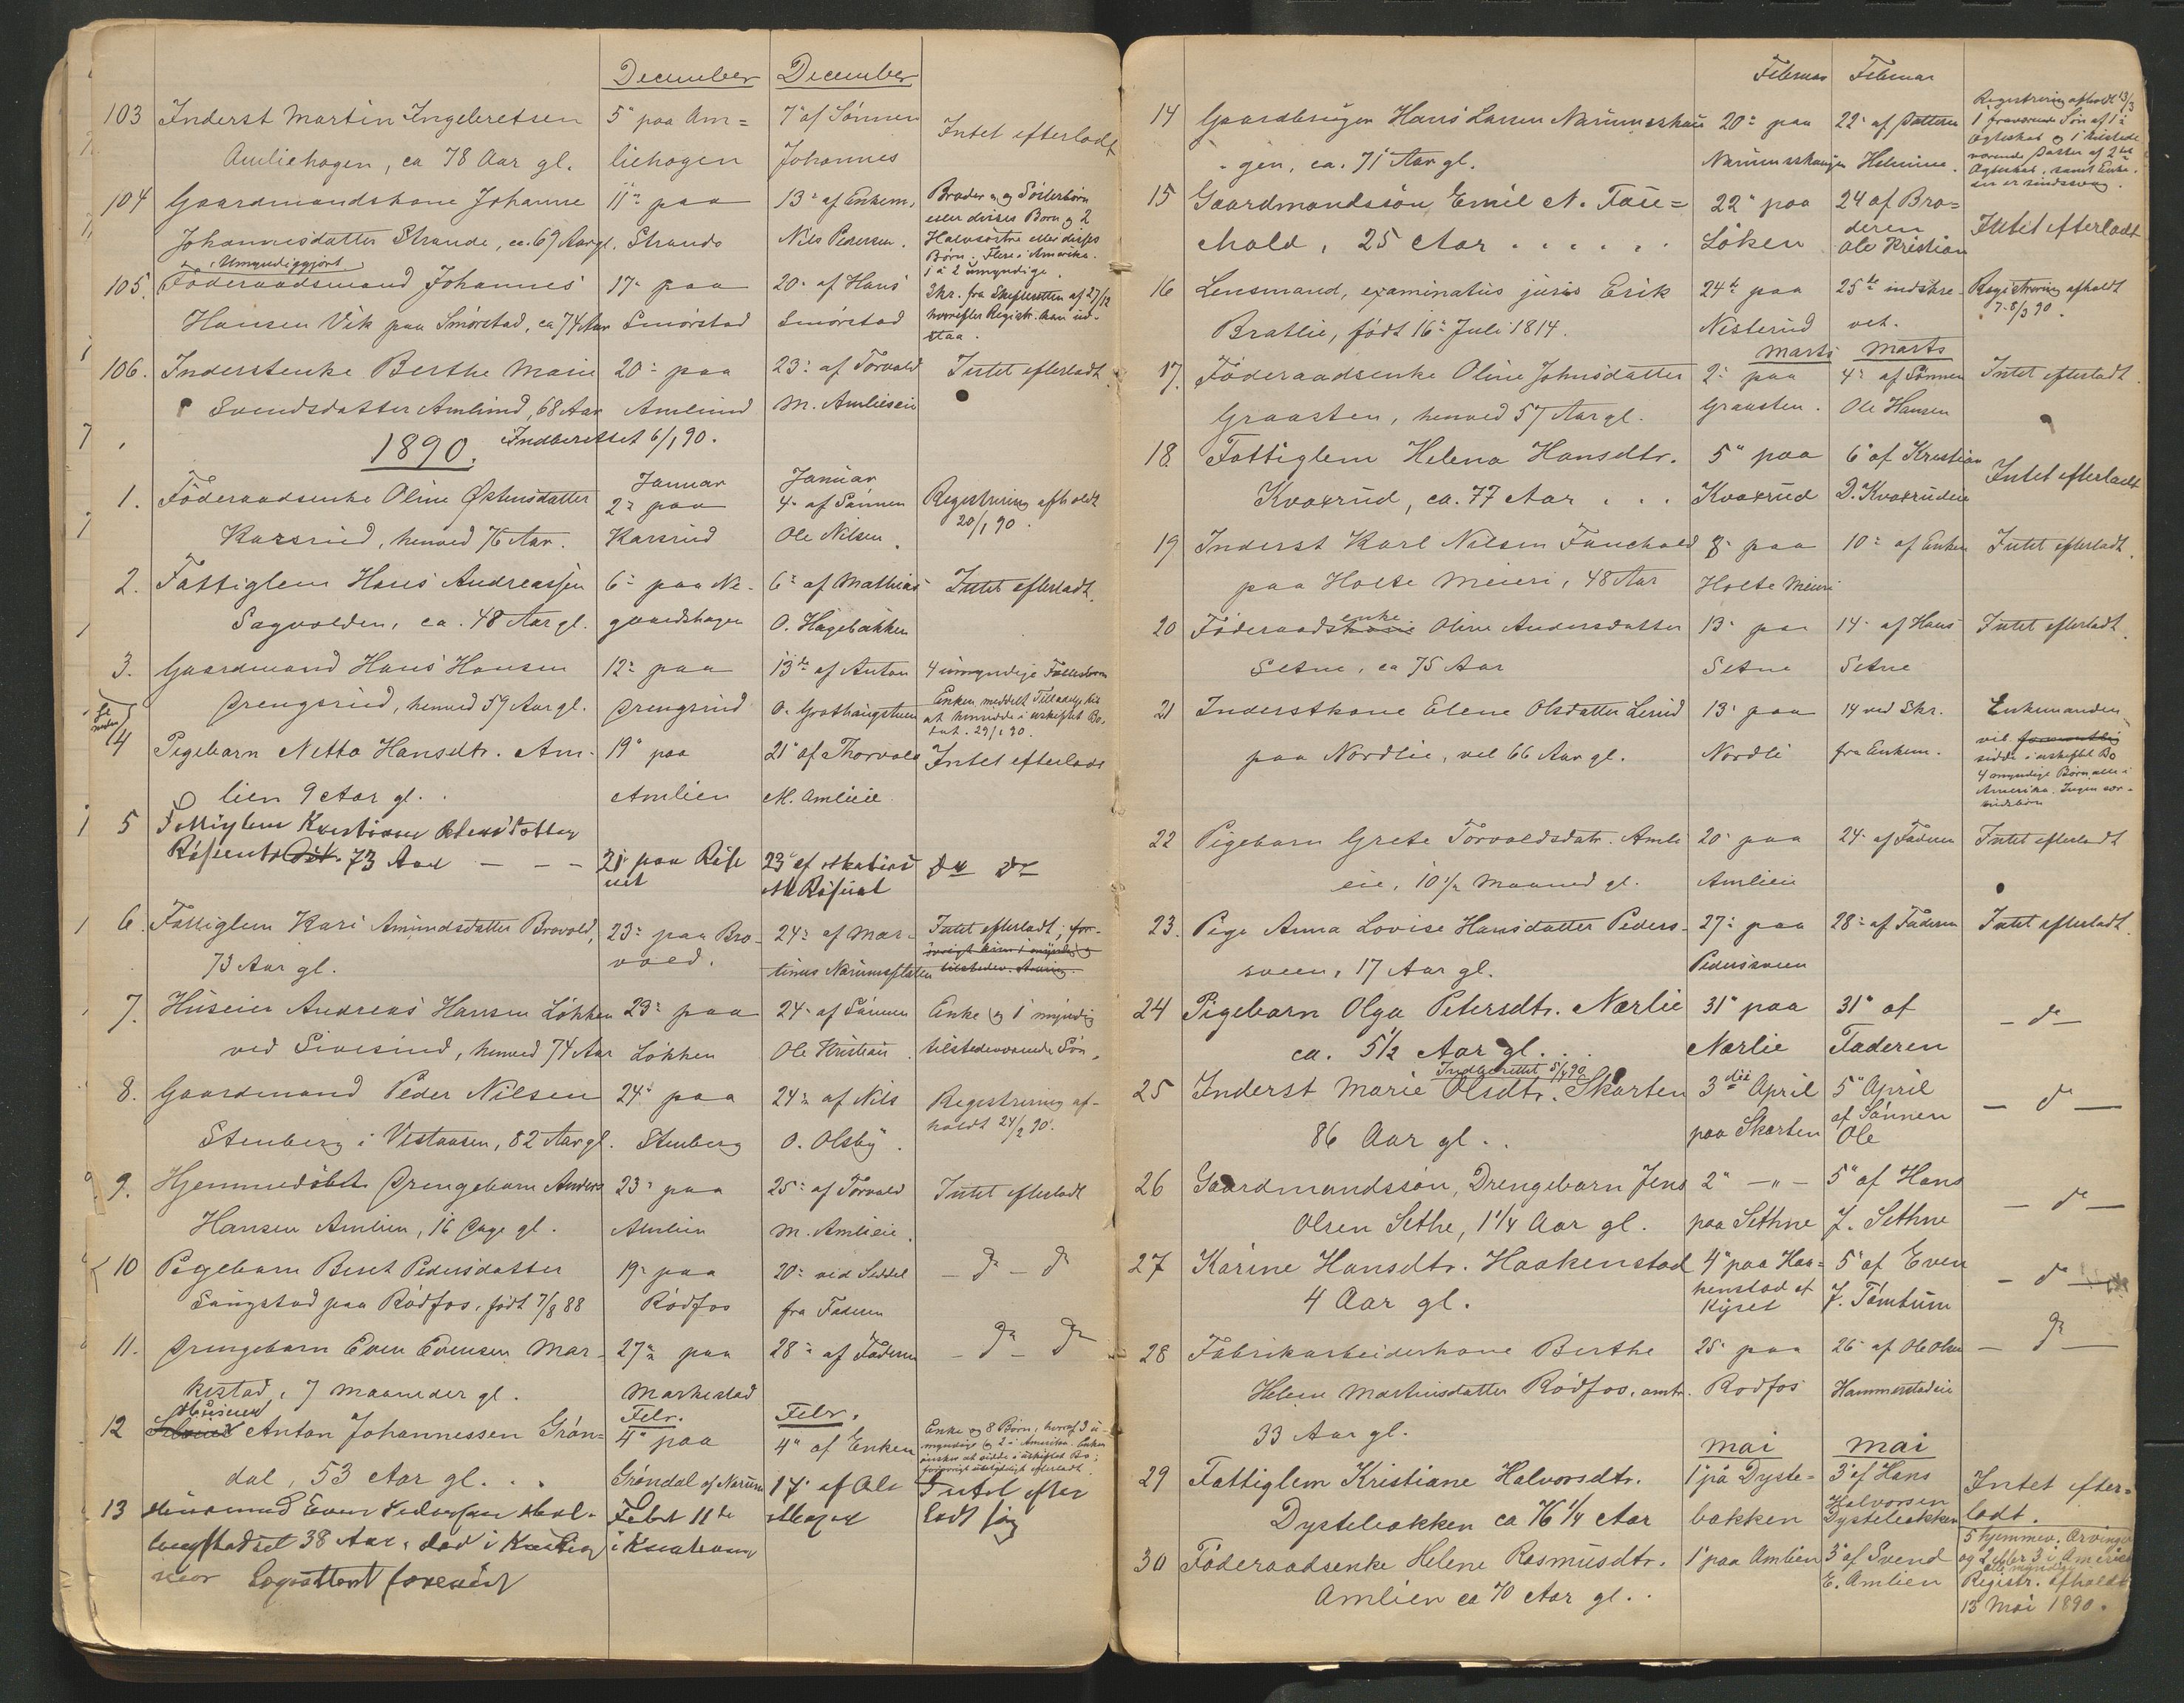 December December
103 Inderst Martin Ingebretsen 5" paa Am= 7" af Sønnen Intet efterladt
Amliehagen, ca 78 Aar gl. liehagen Johannes
104 Gaardmandskone Johanne 11" paa 13" af Enkem. Brødre og Søsterbørn
Johannesdatter Strande, ca. 69 Aar gl. Strande Nils Pedersen. eller disses Børn og 2
Halvsøstre eller disses
Børn. Flere i Amerika.
1 à 2 umyndige.
Umyndiggjort
105. Föderaadsmand Johannes 17" paa 20" af Hans Skr. fra Skifteretten af 27/12
Hansen Vik paa Smörstad, ca 74 Aar Smörstad Smörstad hvorefter Registr. kan ud-
staa.
106. Inderstenke Berthe Marie 20" paa 23" af Torvald Intet efterladt.
Svendsdatter Amlund, 68 Aar Amlund M. Amlieeie
1890. Indberettet 6/1 90.
Januar Januar
1. Föderaadsenke Oline Østensdatter 2" paa 4" af Sønnen Registrering afholdt
Karsrud, henved 76 Aar. Karsrud Ole Nilsen. 20/1 90.
2. Fattiglem Hans Andreassen 6" paa Ne- 6" af Mathias Intet efterladt.
Sagvolden, ca. 48 Aar gl. gaardshagen O. Hagebakken
3. Gaardmand Hans Hansen 12" paa 13de af Anton 4 umyndige Fællesbørn
Drengsrud, henved 59 Aar gl. Drengsrud O. Enken meddelt Tilladelse til
at hensidde i uskiftet Bo.
29/1 90.
4 Pigebarn Netta Hansdtr. Am- 19" paa 21" af Thorvald Intet efterladt
lien 9 Aar gl. Amlien M. Amlieie
5 Fattiglem Kristiane datter
73 Aar — — — 21" paa Røse 23" af Do Do
6. Fattiglem Kari Amundsdatter Brovold, 23" paa Bro- 24" af Mar- Intet efterladt;
73 Aar gl. vold. tinus
7. Huseier Andreas Hansen Løkken 23" paa 24" af Sønnen Enke og 1 myndig
ved Sivesind, henved 74 Aar Løkken Ole Kristian. tilstedeværende Søn.
8. Gaardmand Peder Nilsen 24" paa 24" af Nils Registrering af-
Stenberg i Vestaasen, 82 Aar gl. Stenberg O. Olsby. holdt 24/2 90.
9. Hjemmedøbt Drengebarn Anders 23" paa 25" af Torvald Intet efterladt
Hansen Amlien, 16 Dage gl. Amlien M. Amlieeie.
10 Pigebarn Berit Pedersdatter 19" paa 20" ved Seddel — Do — Do
Sangstad paa Rödfos, født 7/8 88 Rödfos fra Faderen
11. Drengebarn Even Evensen Mar- 27" paa 28" af Faderen — Do — Do
kestad, 7 Maaneder gl. Markestad
Febr. Febr.
12 Husmand Anton Johannessen Grøn= 4" paa 4" af Enken Enke og 8 Børn, hvoraf 3 u-
dal, 53 Aar gl. . . Grøndal af Narum myndige og 2 i Amerika. Enken
ønsker at sidde i uskiftet Bo;
13 Husmand Even Pedersen Febr 11te 17" af Ole Intet efter
38 Aar, død i ladt sig
Februar Februar
14 Gaardbruger Hans Larsen Narumshau 20" paa 22" af Datteren Registrering afholdt 13/3
- gen, ca. 71 Aar gl. Narumshaugen Helmine. 1 fraværende Søn af 1ste
Ægteskab og 1 tilstede
værende Datter af 2det
Ægteskab, samt Enke,
der er sindssvag.
15 Gaardmandssøn Emil N. Fau= 22" paa 24 af Bro= Intet efterladt
chald, 25 Aar . . . . . . Löken deren
Ole Kristian
16 Lensmand, examinatus juris Erik 24de paa 25de indskre- Registrering afholdt
Bratlie, født 16" Juli 1814. Nisterud vet. 7-8/3 90.
Marts Marts
17. Föderaadsenke Oline Johnsdatter 2" paa 4" af Sønnen Intet efterladt.
Graasten, henved 57 Aar gl. Graasten. Ole Hansen
18. Fattiglem Helena Hansdtr. 5" paa 6" af Kristian Intet efterladt
Kvaxrud, ca. 77 Aar . . . Kvaxrud D. Kvaxrudeie
19. Inderst Karl Nilsen Fauchald 8" paa 10" af Enken Intet efterladt.
paa Holte Meieri, 48 Aar Holte Meieri
20 Föderaadsenke Oline Andersdatter 13" paa 14" af Hans Intet efterladt.
Setne, ca 75 Aar Setne Setne
21 Inderstkone Elene Olsdatter Lerud 13" paa 14 ved Skr. Enkemanden
paa Nordlie, vel 66 Aar gl. Nordli fra Enkem. vil
sidde i uskiftet Bo
4 myndige Børn alle i
Amerika. Ingen sær-
kuldbørn
22 Pigebarn Grete Torvaldsdatr. Amli 20" paa 24" af Faderen Intet efterladt
eie, 10 1/2 Maaned gl. Amlieie
23. Pige Anna Lovise Hansdatter Peders- 27" paa 28" af Faderen Intet efterladt.
sveen, 17 Aar gl. Pederssveen
24 Pigebarn Olga Petersdtr. Nærlie 31" paa 31" af — do —
ca. 5 1/2 Aar gl. . . Nærlie Faderen
Indberettet 5/4 90
25 Inderst Marie Olsdtr. Skarten 3die April 5" April — do —
86 Aar gl. . paa Skarten af Sønnen
Ole
26 Gaardmandssøn, Drengebarn Jens 2" —"— 5" af Hans — do —
Olsen Sethe, 1 1/4 Aar gl. paa Sethne J. Sethne
27 Karine Hansdtr. Haakenstad 4" paa Haa= 5" af Even — do —
4 Aar gl. kenstad af J. Tømtum
28 Fabrikarbeiderkone Berthe 25" paa 26" af Ole Olsen — Do —
Helene Martinsdatter Rödfos, omtr. Rodfos Hammerstadeie
33 Aar gl.
Mai Mai
29 Fattiglem Kristiane Halvorsdtr. 1" pa Dyste= 3" af Hans Intet efter=
Dystebakken ca 76 1/4 Aar bakken Halvorsen ladt.
Dystebakken
30 Föderaadsenke Helene Rasmusdtr. 1" paa Amlien 3" af Svend 5 hjemmev. Arvinger
Amlien ca 70 Aar gl. . E. Amlien og 2 eller 3 i Amerika
alle myndige
Registr. afholdt
13 Mai 1890.